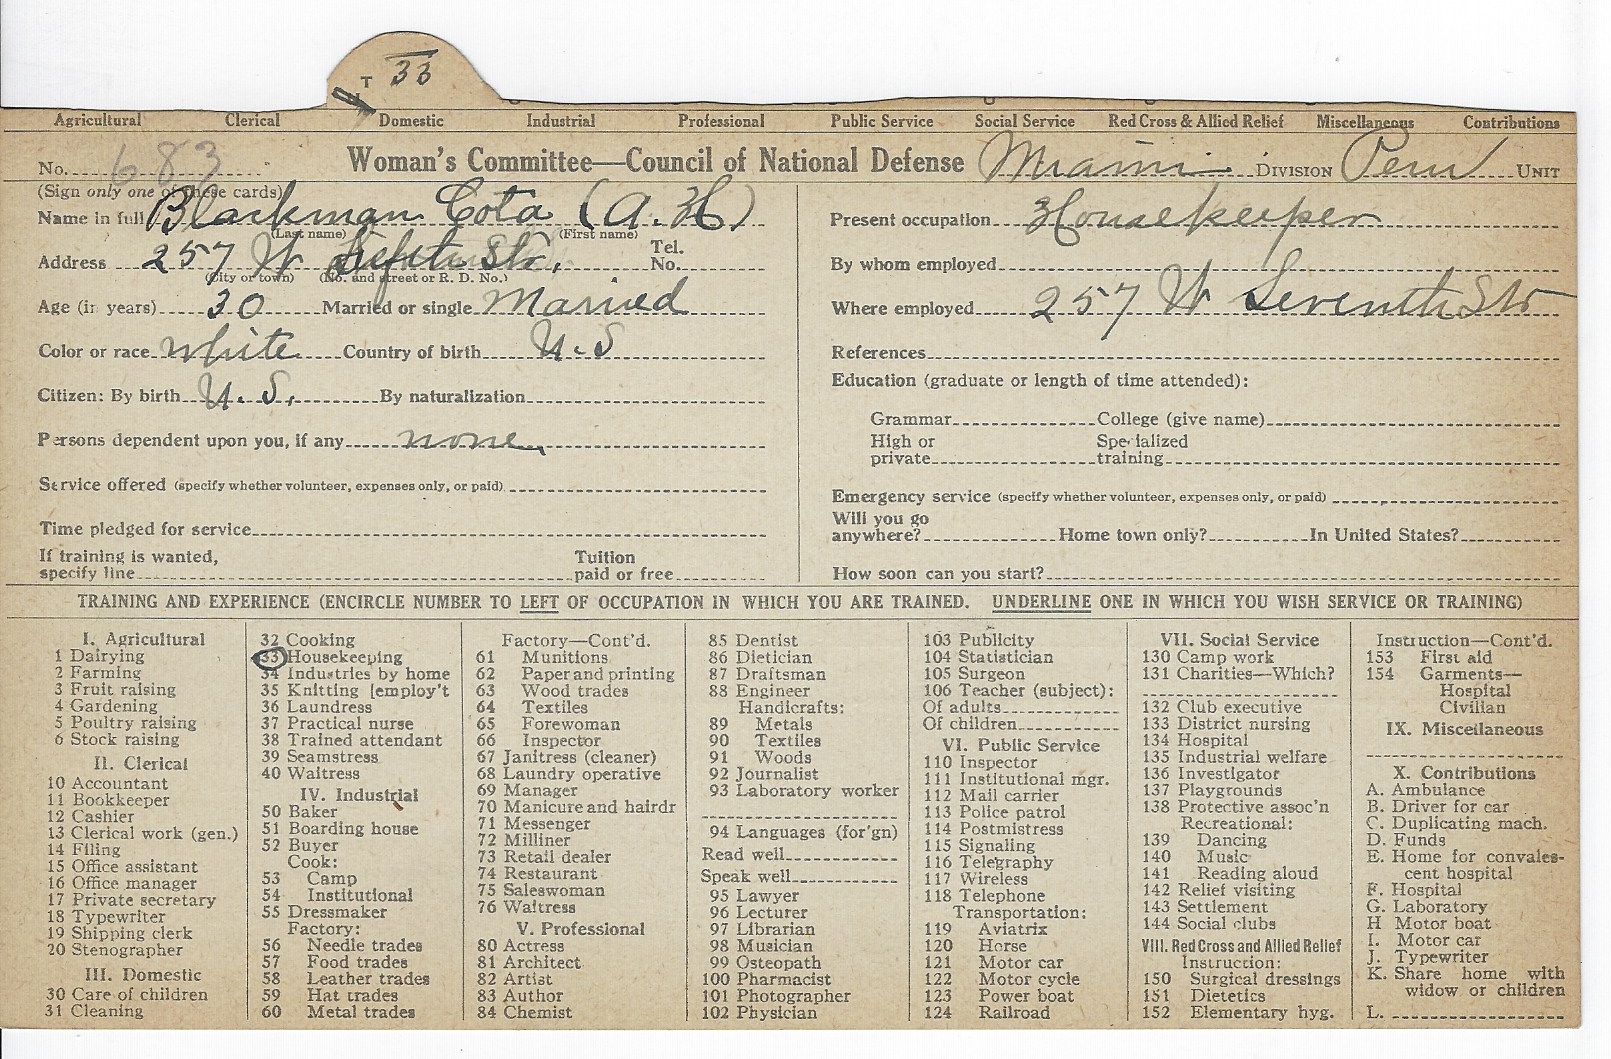 T 33
Agricultural Clerical Domestic Industrial Professional Public Service Social Service Red Cross & Allied Relief Miscellaneous Contributions
No. 683 Woman's Committee—Council of National Defense Miami DIVISION Peru UNIT
(Sign only one of these cards)
Name in full Blackman Cota (A. H)
(Last name) (First name)
Address 257 W Str. Tel. No.
(City or town) (No. and street or R. D. No.)
Age (in years) 30 Married or single Married
Color or race white Country of birth U.S
Citizen: By birth U.S. By naturalization
Persons dependent upon you, if any none
Service offered (specify whether volunteer, expenses only, or paid)
Time pledged for service
If training is wanted, specify line Tuition paid or free
Present occupation Housekeeper
By whom employed
Where employed 257 W Seventh Str
References
Education (graduate or length of time attended):
Grammar College (give name)
High or private Specialized training
Emergency service (specify whether volunteer, expenses only, or paid)
Will you go anywhere? Home town only? In United States?
How soon can you start?
TRAINING AND EXPERIENCE (ENCIRCLE NUMBER TO LEFT OF OCCUPATION IN WHICH YOU ARE TRAINED. UNDERLINE ONE IN WHICH YOU WISH SERVICE OR TRAINING)
I. Agricultural
1 Dairying
2 Farming
3 Fruit raising
4 Gardening
5 Poultry raising
6 Stock raising
II. Clerical
10 Accountant
11 Bookkeeper
12 Cashier
13 Clerical work (gen.)
14 Filing
15 Office assistant
16 Office manager
17 Private secretary
18 Typewriter
19 Shipping clerk
20 Stenographer
III. Domestic
30 Care of children
31 Cleaning
32 Cooking
33 Housekeeping
34 Industries by home
35 Knitting [employ't
36 Laundress
37 Practical nurse
38 Trained attendant
39 Seamstress
40 Waitress
IV. Industrial
50 Baker
51 Boarding house
52 Buyer
Cook:
53 Camp
54 Institutional
55 Dressmaker
Factory:
56 Needle trades
57 Food trades
58 Leather trades
59 Hat trades
60 Metal trades
Factory—Cont'd.
61 Munitions
62 Paper and printing
63 Wood trades
64 Textiles
65 Forewoman
66 Inspector
67 Janitress (cleaner)
68 Laundry operative
69 Manager
70 Manicure and hairdr
71 Messenger
72 Milliner
73 Retail dealer
74 Restaurant
75 Saleswoman
76 Waitress
V. Professional
80 Actress
81 Architect
82 Artist
83 Author
84 Chemist
85 Dentist
86 Dietician
87 Draftsman
88 Engineer
Handicrafts:
89 Metals
90 Textiles
91 Woods
92 Journalist
93 Laboratory worker
94 Languages (for'gn)
Read well
Speak well
95 Lawyer
96 Lecturer
97 Librarian
98 Musician
99 Osteopath
100 Pharmacist
101 Photographer
102 Physician
103 Publicity
104 Statistician
105 Surgeon
106 Teacher (subject):
Of adults
Of children
VI. Public Service
110 Inspector
111 Institutional mgr.
112 Mail carrier
113 Police patrol
114 Postmistress
115 Signaling
116 Telegraphy
117 Wireless
118 Telephone
Transportation:
119 Aviatrix
120 Horse
121 Motor car
122 Motor cycle
123 Power boat
124 Railroad
VII. Social Service
130 Camp work
131 Charities—Which?
132 Club executive
133 District nursing
134 Hospital
135 Industrial welfare
136 Investigator
137 Playgrounds
138 Protective assoc'n
Recreational:
139 Dancing
140 Music
141 Reading aloud
142 Relief visiting
143 Settlement
144 Social clubs
VIII. Red Cross and Allied Relief
Instruction:
150 Surgical dressings
151 Dietetics
152 Elementary hyg.
Instruction—Cont'd.
153 First aid
154 Garments—
Hospital
Civilian
IX. Miscellaneous
X. Contributions
A. Ambulance
B. Driver for car
C. Duplicating mach.
D. Funds
E. Home for convales-
cent hospital
F. Hospital
G. Laboratory
H Motor boat
I. Motor car
J. Typewriter
K. Share home with
widow or children
L.